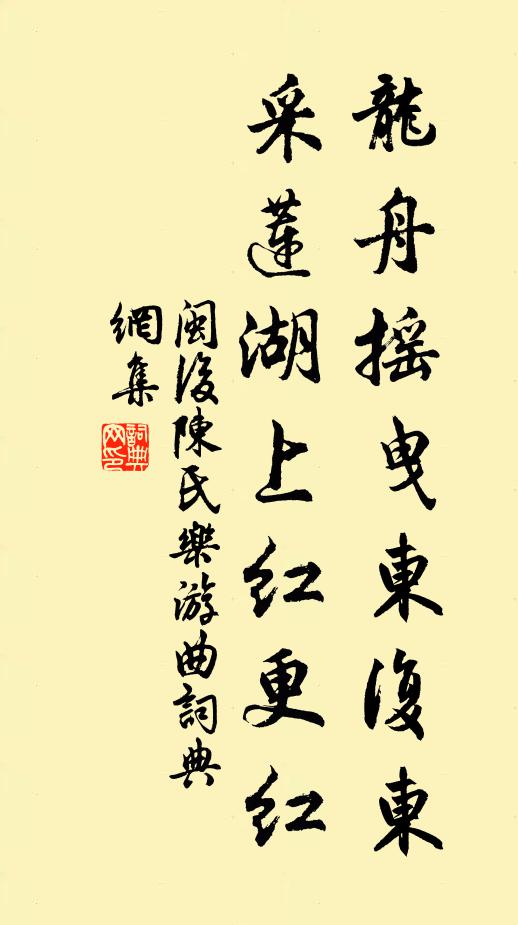 龍舟搖曳東復東
采蓮湖上紅更紅
閩後陳氏樂游曲詞典
網集
詞典
网印